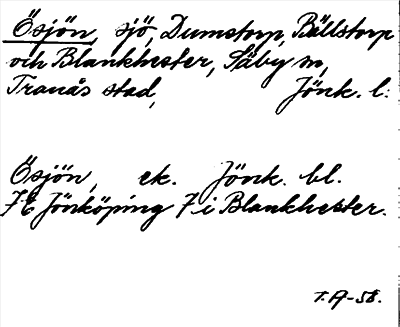 Ösjön, sjö, Dumstorp, Bällstorp
och Blankhester, Säby sn,
Tranås stad, Jönk. l:
Ösjön, ek. Jönk. bl.
7E Jönköping 7 i Blankhester.
T.A-58.